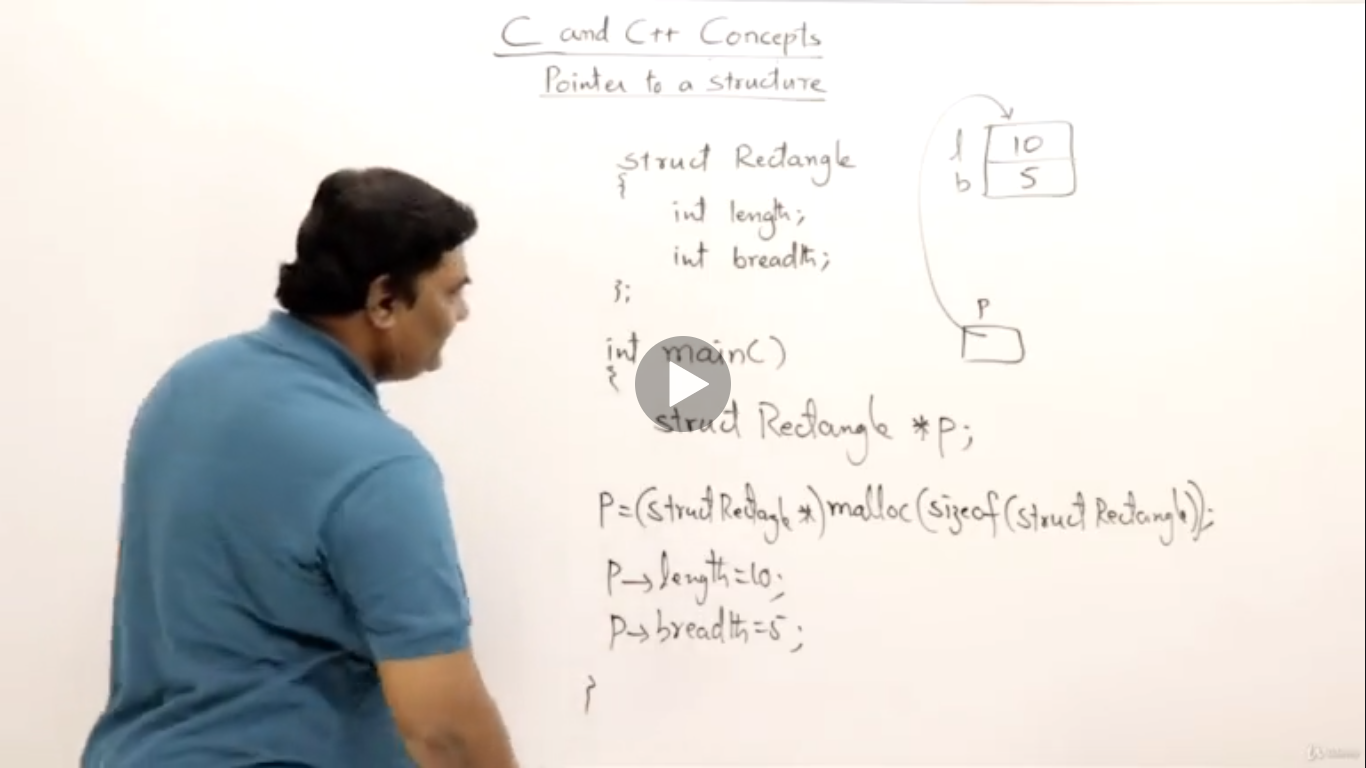 C and C++ Concepts
Pointer to a structure
struct Rectangle
{
int length;
int breadth;
};
int main()
{
struct Rectangle *p;
P=(struct Rectagle *)malloc(sizeof(struct Rectangle));
P→length=10;
P→breadth=5;
}
l 10
b 5
P